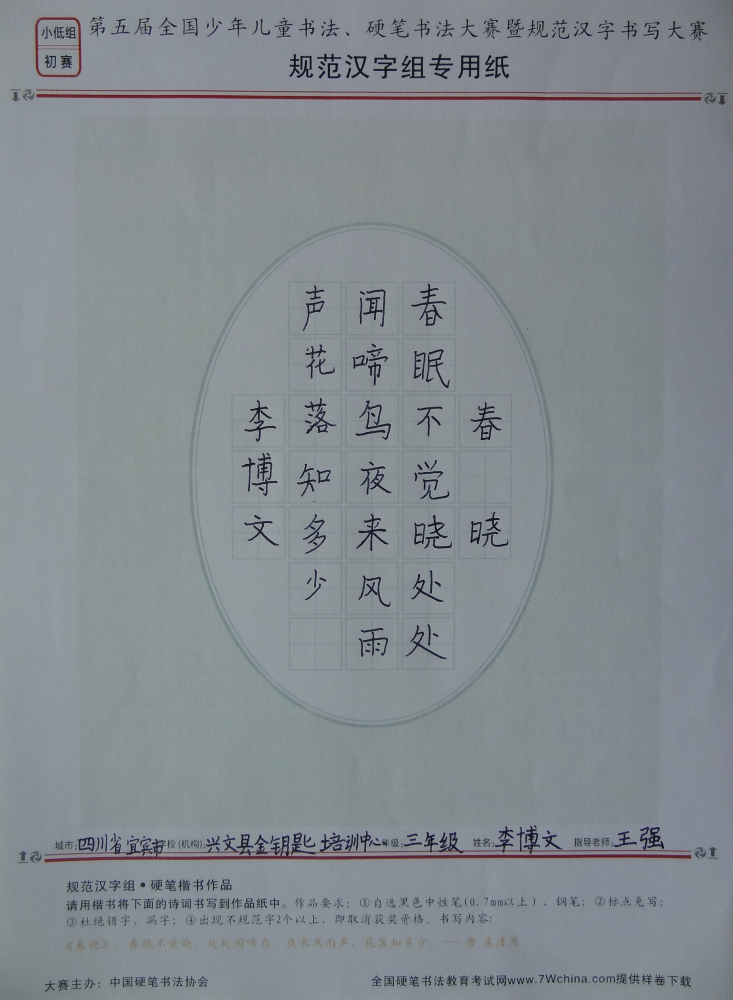 小低组
初赛
第五届全国少年儿童书法、硬笔书法大赛暨规范汉字书写大赛
规范汉字组专用纸
春晓
春眠不觉晓处处
闻啼鸟夜来风雨
声花落知多少
李博文
城市:四川省宜宾市学校(机构):兴文县金钥匙培训中心年级:三年级 姓名:李博文 指导老师:王强
规范汉字组•硬笔楷书作品
请用楷书将下面的诗词书写到作品纸中。作品要求：①自选黑色中性笔(0.7mm以上)、钢笔；②标点免写；
③杜绝错字、漏字；④出现不规范字2个以上，即取消获奖资格。书写内容：
《春晓》：春眠不觉晓，处处闻啼鸟。夜来风雨声，花落知多少。——唐 孟浩然
大赛主办：中国硬笔书法协会 全国硬笔书法教育考试网www.7Wchina.com提供样卷下载